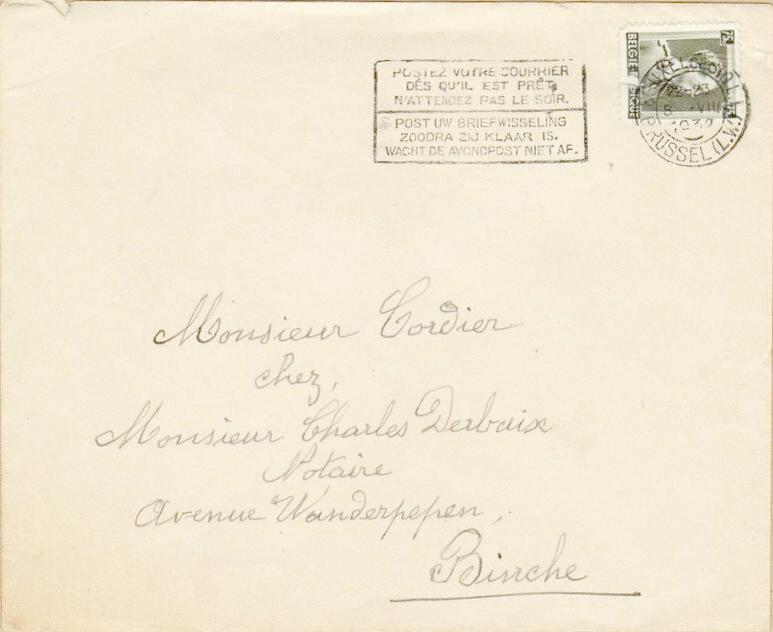 POSTEZ VOTRE COURRIER
DÈS QU'IL EST PRÊT,
N'ATTENDEZ PAS LE SOIR.
POST UW BRIEFWISSELING
ZOODRA ZIJ KLAAR IS.
WACHT DE AVONDPOST NIET AF.
75
BELGIE
BRUSSEL (L.W.)
VIII
Monsieur Cordier
chez,
Monsieur Charles Derbaix
Notaire
Avenue Wanderpepen,
Binche